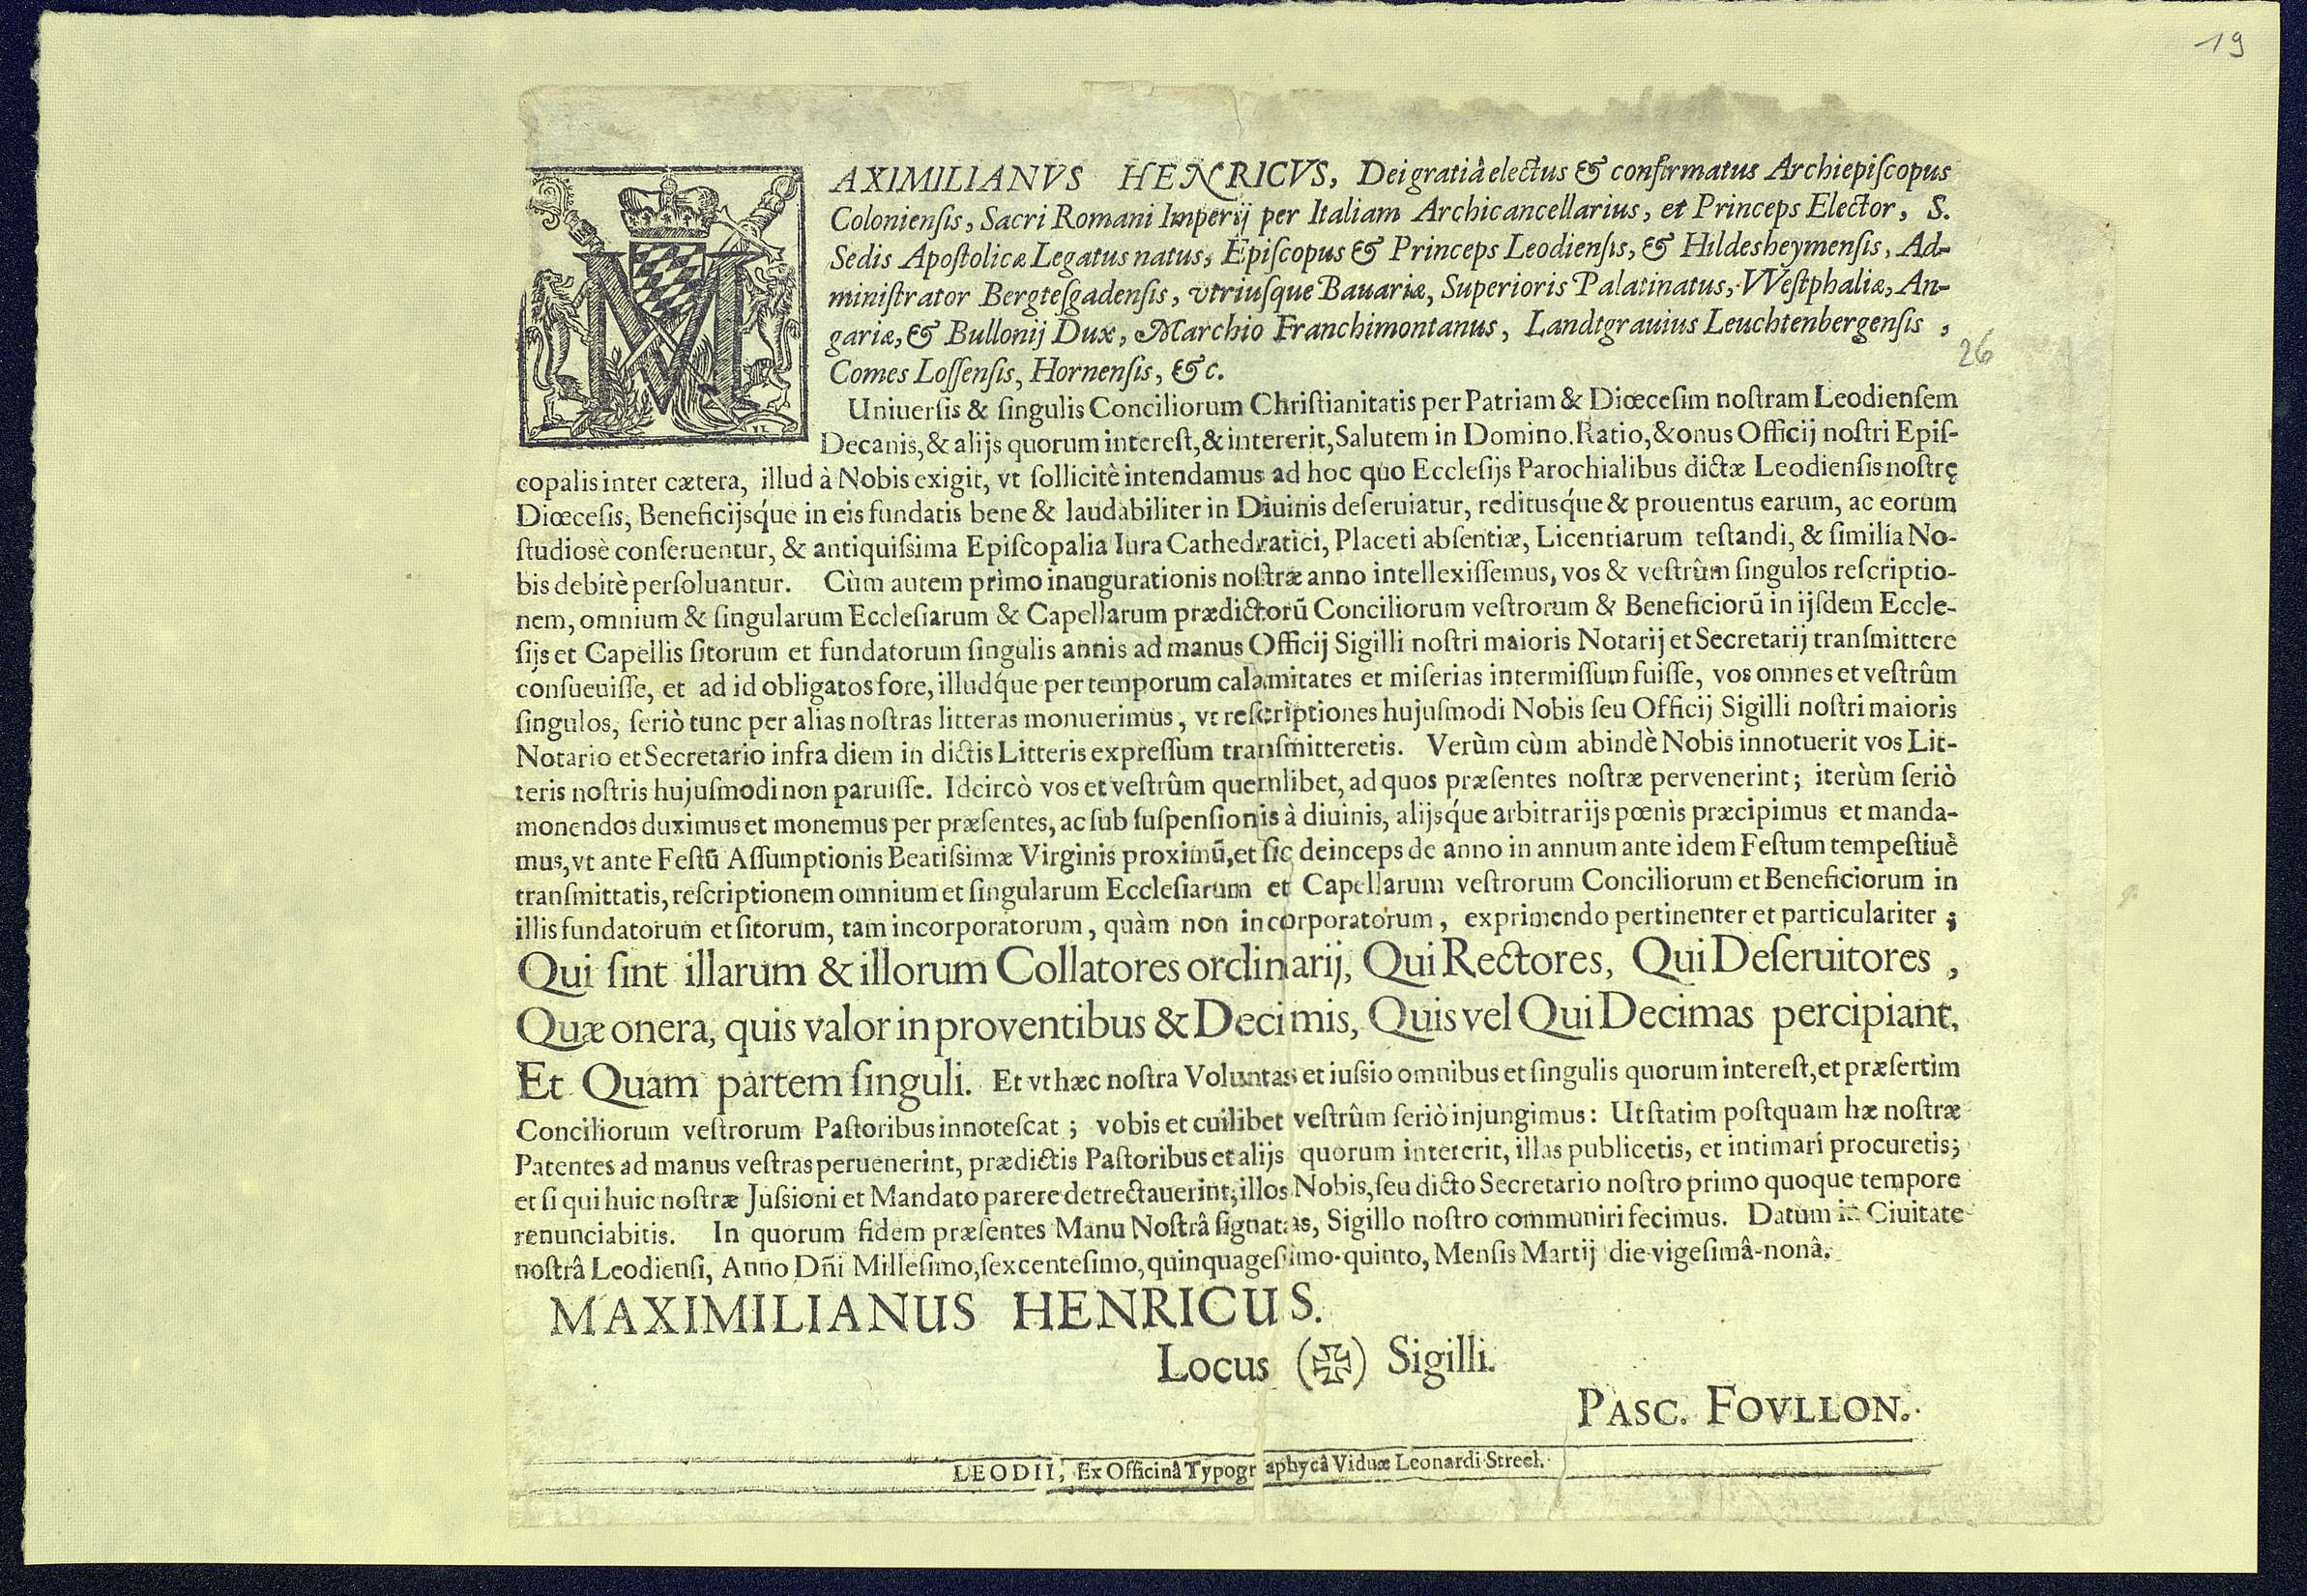 19
MAXIMILIANVS HENRICVS, Dei gratiâ electus & confirmatus Archiepiſcopus
Colonienſis, Sacri Romani Imperij per Italiam Archicancellarius, et Princeps Elector, S.
Sedis Apoſtolicæ Legatus natus, Epiſcopus & Princeps Leodienſis, & Hildesheymenſis, Ad-
miniſtrator Bergteſgadenſis, vtriuſque Bauariæ, Superioris Palatinatus, VVeſtphaliæ, An-
gariæ, & Bullonij Dux, Marchio Franchimontanus, Landtgrauius Leuchtenbergenſis,
26
Comes Loſſenſis, Hornenſis, &c.
Uniuerſis & ſingulis Conciliorum Chriſtianitatis per Patriam & Diœceſim noſtram Leodienſem
Decanis, & alijs quorum intereſt, & intererit, Salutem in Domino. Ratio, & onus Officij noſtri Epiſ-
copalis inter cætera, illud à Nobis exigit, vt ſollicitè intendamus ad hoc quo Eccleſijs Parochialibus dictæ Leodienſis noſtrę
Diœceſis, Beneficijsq́ue in eis fundatis bene & laudabiliter in Diuinis deſeruiatur, reditusq́ue & prouentus earum, ac eorum
ſtudiosè conſeruentur, & antiquiſsima Epiſcopalia Iura Cathedratici, Placeti abſentiæ, Licentiarum teſtandi, & ſimilia No-
bis debitè perſoluantur. Cùm autem primo inaugurationis noſtræ anno intellexiſſemus, vos & veſtrûm ſingulos reſcriptio-
nem, omnium & ſingularum Eccleſiarum & Capellarum prædictorũ Conciliorum veſtrorum & Beneficiorũ in ijſdem Eccle-
ſijs et Capellis ſitorum et fundatorum ſingulis annis ad manus Officij Sigilli noſtri maioris Notarij et Secretarij tranſmittere
conſueuiſſe, et ad id obligatos fore, illudq́ue per temporum calamitates et miſerias intermiſſum fuiſſe, vos omnes et veſtrûm
ſingulos, ſeriò tunc per alias noſtras litteras monuerimus, vt reſcriptiones hujuſmodi Nobis ſeu Officij Sigilli noſtri maioris
Notario et Secretario infra diem in dictis Litteris expreſſum tranſmitteretis. Verùm cùm abindè Nobis innotuerit vos Lit-
teris noſtris hujuſmodi non paruiſſe. Idcircò vos et veſtrûm quemlibet, ad quos præſentes noſtræ pervenerint; iterùm ſeriò
monendos duximus et monemus per præſentes, ac ſub ſuſpenſionis à diuinis, alijsq́ue arbitrarijs pœnis præcipimus et manda-
mus, vt ante Feſtũ Aſſumptionis Beatiſsimæ Virginis proximũ, et ſic deinceps de anno in annum ante idem Feſtum tempeſtiuè
tranſmittatis, reſcriptionem omnium et ſingularum Eccleſiarum et Capellarum veſtrorum Conciliorum et Beneficiorum in
illis fundatorum et ſitorum, tam incorporatorum, quàm non incorporatorum, exprimendo pertinenter et particulariter;
Qui ſint illarum & illorum Collatores ordinarij, Qui Rectores, Qui Deſeruitores,
Quæ onera, quis valor in proventibus & Decimis, Quis vel Qui Decimas percipiant,
Et Quam partem ſinguli. Et vt hæc noſtra Voluntas et iuſsio omnibus et ſingulis quorum intereſt, et præſertim
Conciliorum veſtrorum Paſtoribus innoteſcat; vobis et cuilibet veſtrûm ſeriò injungimus: Ut ſtatim poſtquam hæ noſtræ
Patentes ad manus veſtras peruenerint, prædictis Paſtoribus et alijs quorum intererit, illas publicetis, et intimari procuretis;
et ſi qui huic noſtræ Juſsioni et Mandato parere detrectauerint, illos Nobis, ſeu dicto Secretario noſtro primo quoque tempore
renunciabitis. In quorum fidem præſentes Manu Noſtrâ ſignatas, Sigillo noſtro communiri fecimus. Datum in Ciuitate
noſtrâ Leodienſi, Anno Dñi Milleſimo, ſexcenteſimo, quinquageſimo-quinto, Menſis Martij die vigeſimâ-nonâ.
MAXIMILIANUS HENRICUS.
Locus (✠) Sigilli.
PASC. FOVLLON.
LEODII, Ex Officinâ Typographycâ Viduæ Leonardi Streel.